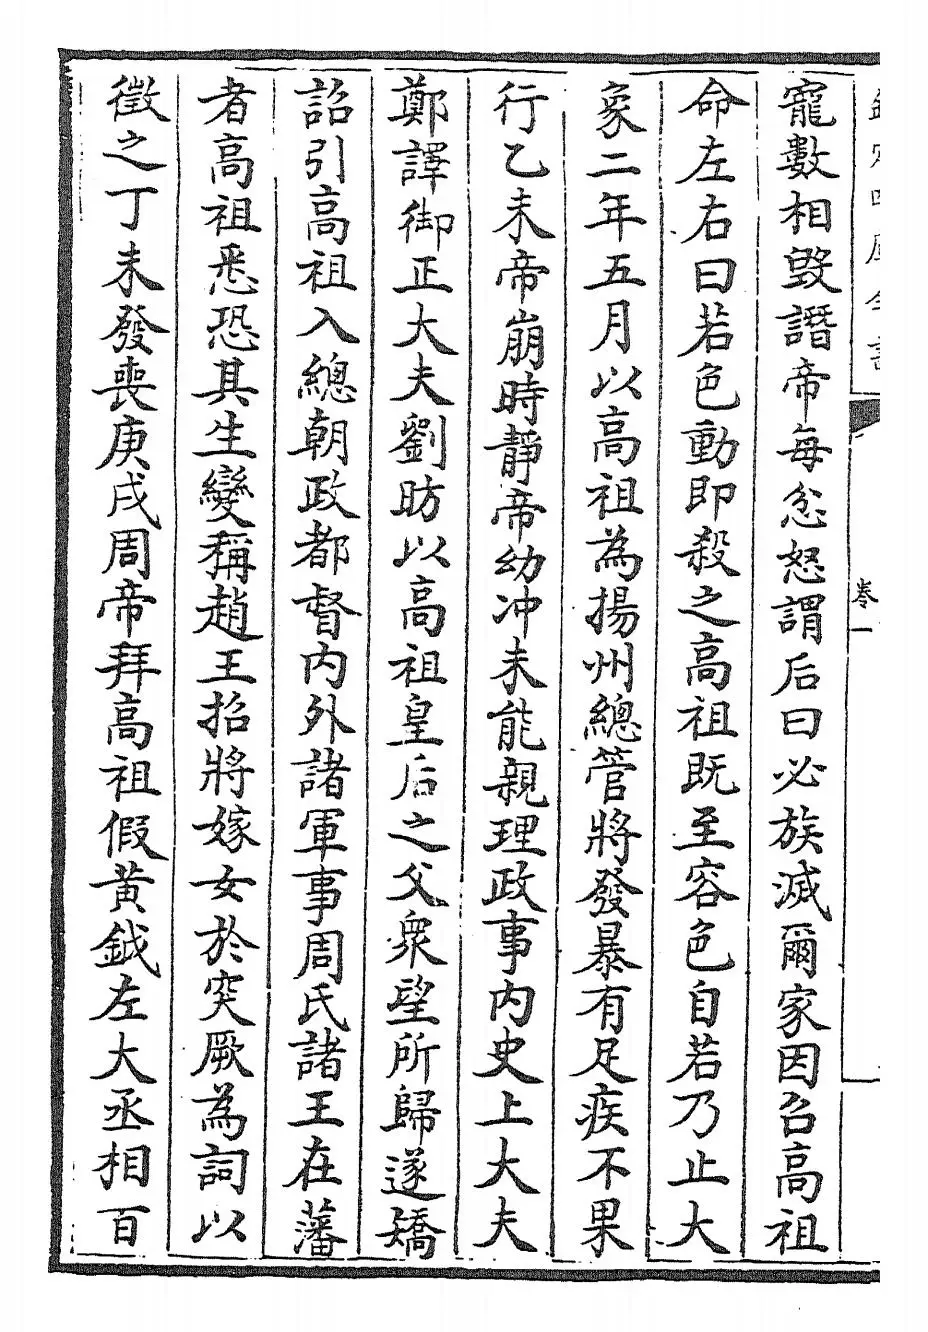 欽定四庫全書
卷一
寵數相毀譖帝每忿怒謂后曰必族滅爾家因召高祖
命左右曰若色動即殺之高祖既至容色自若乃止大
象二年五月以高祖為揚州總管將發暴有足疾不果
行乙未帝崩時靜帝幼沖未能親理政事內史上大夫
鄭譯御正大夫劉昉以高祖皇后之父衆望所歸遂矯
詔引高祖入總朝政都督內外諸軍事周氏諸王在藩
者高祖悉恐其生變稱趙王招將嫁女於突厥為詞以
徵之丁未發喪庚戌周帝拜高祖假黄鉞左大丞相百